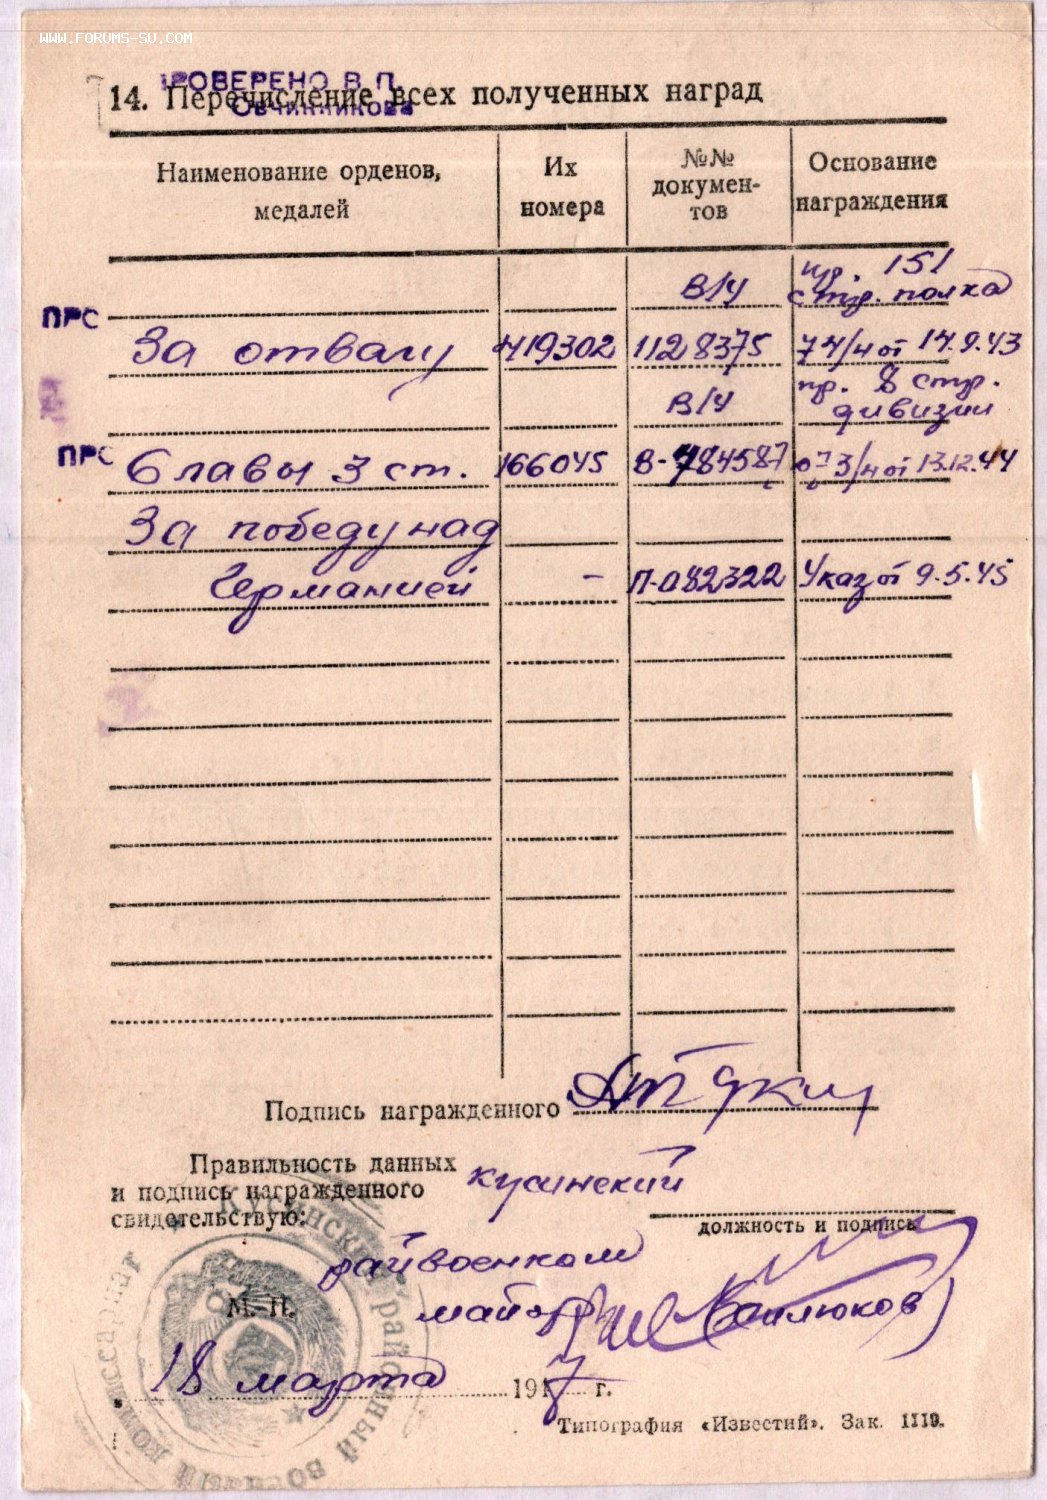 WWW.FORUMS-SU.COM
ПРОВЕРЕНО В.П.
Овчинникова
14. Перечисление всех полученных наград
Наименование орденов, медалей
Их номера
№№ докумен-тов
Основание награждения
В/У пр. 151 стр. полка
ПРС
За отвагу 419302 1128375 74/н от 14.9.43
В/У пр. 8 стр. дивизии
ПРС
Славы 3 ст. 166045 В-784587 3/н от 13.12.44
За победу над
Германией - П-082322 Указ от 9.5.45
Подпись награжденного
Правильность данных
и подпись награжденного
свидетельствую:
Кусинский
должность и подпись
райвоенком
майор
М. П.
18 марта 1947 г.
Типография «Известий». Зак. 1119.
Кусинский районный военный комиссариат